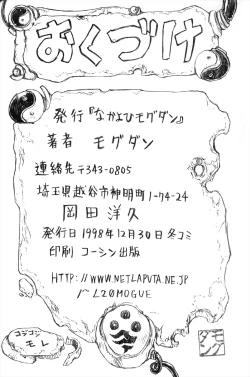 おくづけ
発行『なかよひモグダン』
著者 モグダン
連絡先〒343-0805
埼玉県越谷市神明町1-74-24
岡田洋久
発行日1998年12月30日冬コミ
印刷 コーシン出版
HTTP://WWW.NETLAPUTA.NE.JP
/~L20MOGUE
コデコン
モレ